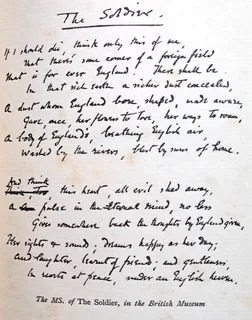 The Soldier.
If I should die, think only this of me:
That there's some corner of a foreign field
That is for ever England. There shall be
In that rich earth a richer dust concealed,
A dust whom England bore, shaped, made aware,
Gave, once, her flowers to love, her ways to roam,
A body of England's, breathing English air,
Washed by the rivers, blest by suns of home.
And think
this heart, all evil shed away,
A pulse in the Eternal mind, no less
Gives somewhere back the thoughts by England given,
Her sights & sounds; dreams happy as her day;
And laughter, learnt of friends; and gentleness,
In hearts at peace, under an English heaven.
The MS. of The Soldier, in the British Museum